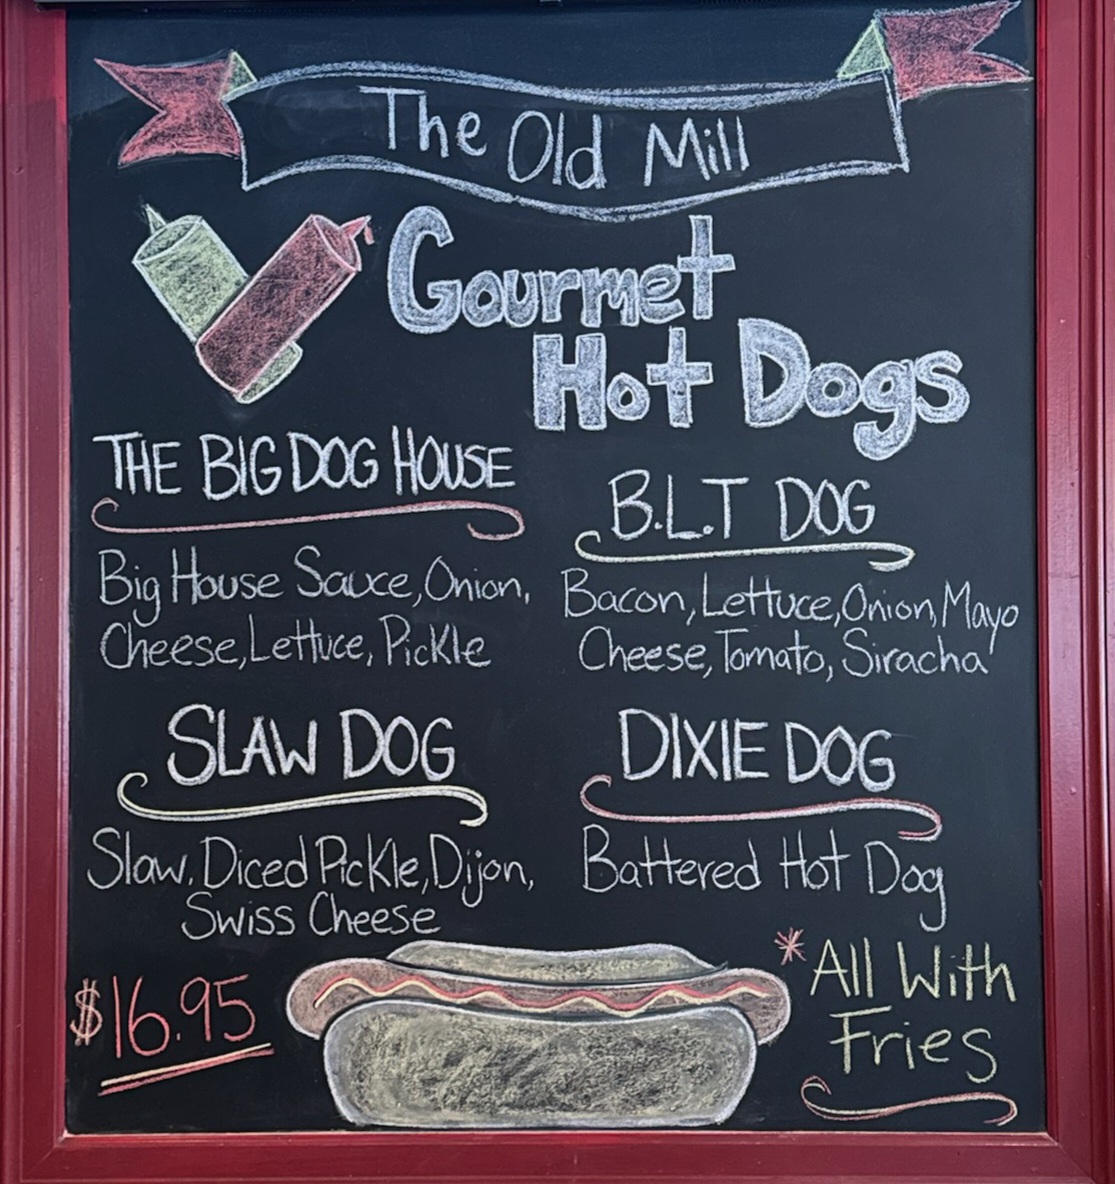 The Old Mill
Gourmet
Hot Dogs
THE BIG DOG HOUSE
Big House Sauce, Onion,
Cheese, Lettuce, Pickle
B.L.T DOG
Bacon, Lettuce, Onion, Mayo
Cheese, Tomato, Siracha
SLAW DOG
Slaw, Diced Pickle, Dijon,
Swiss Cheese
DIXIE DOG
Battered Hot Dog
$16.95
*All With
Fries